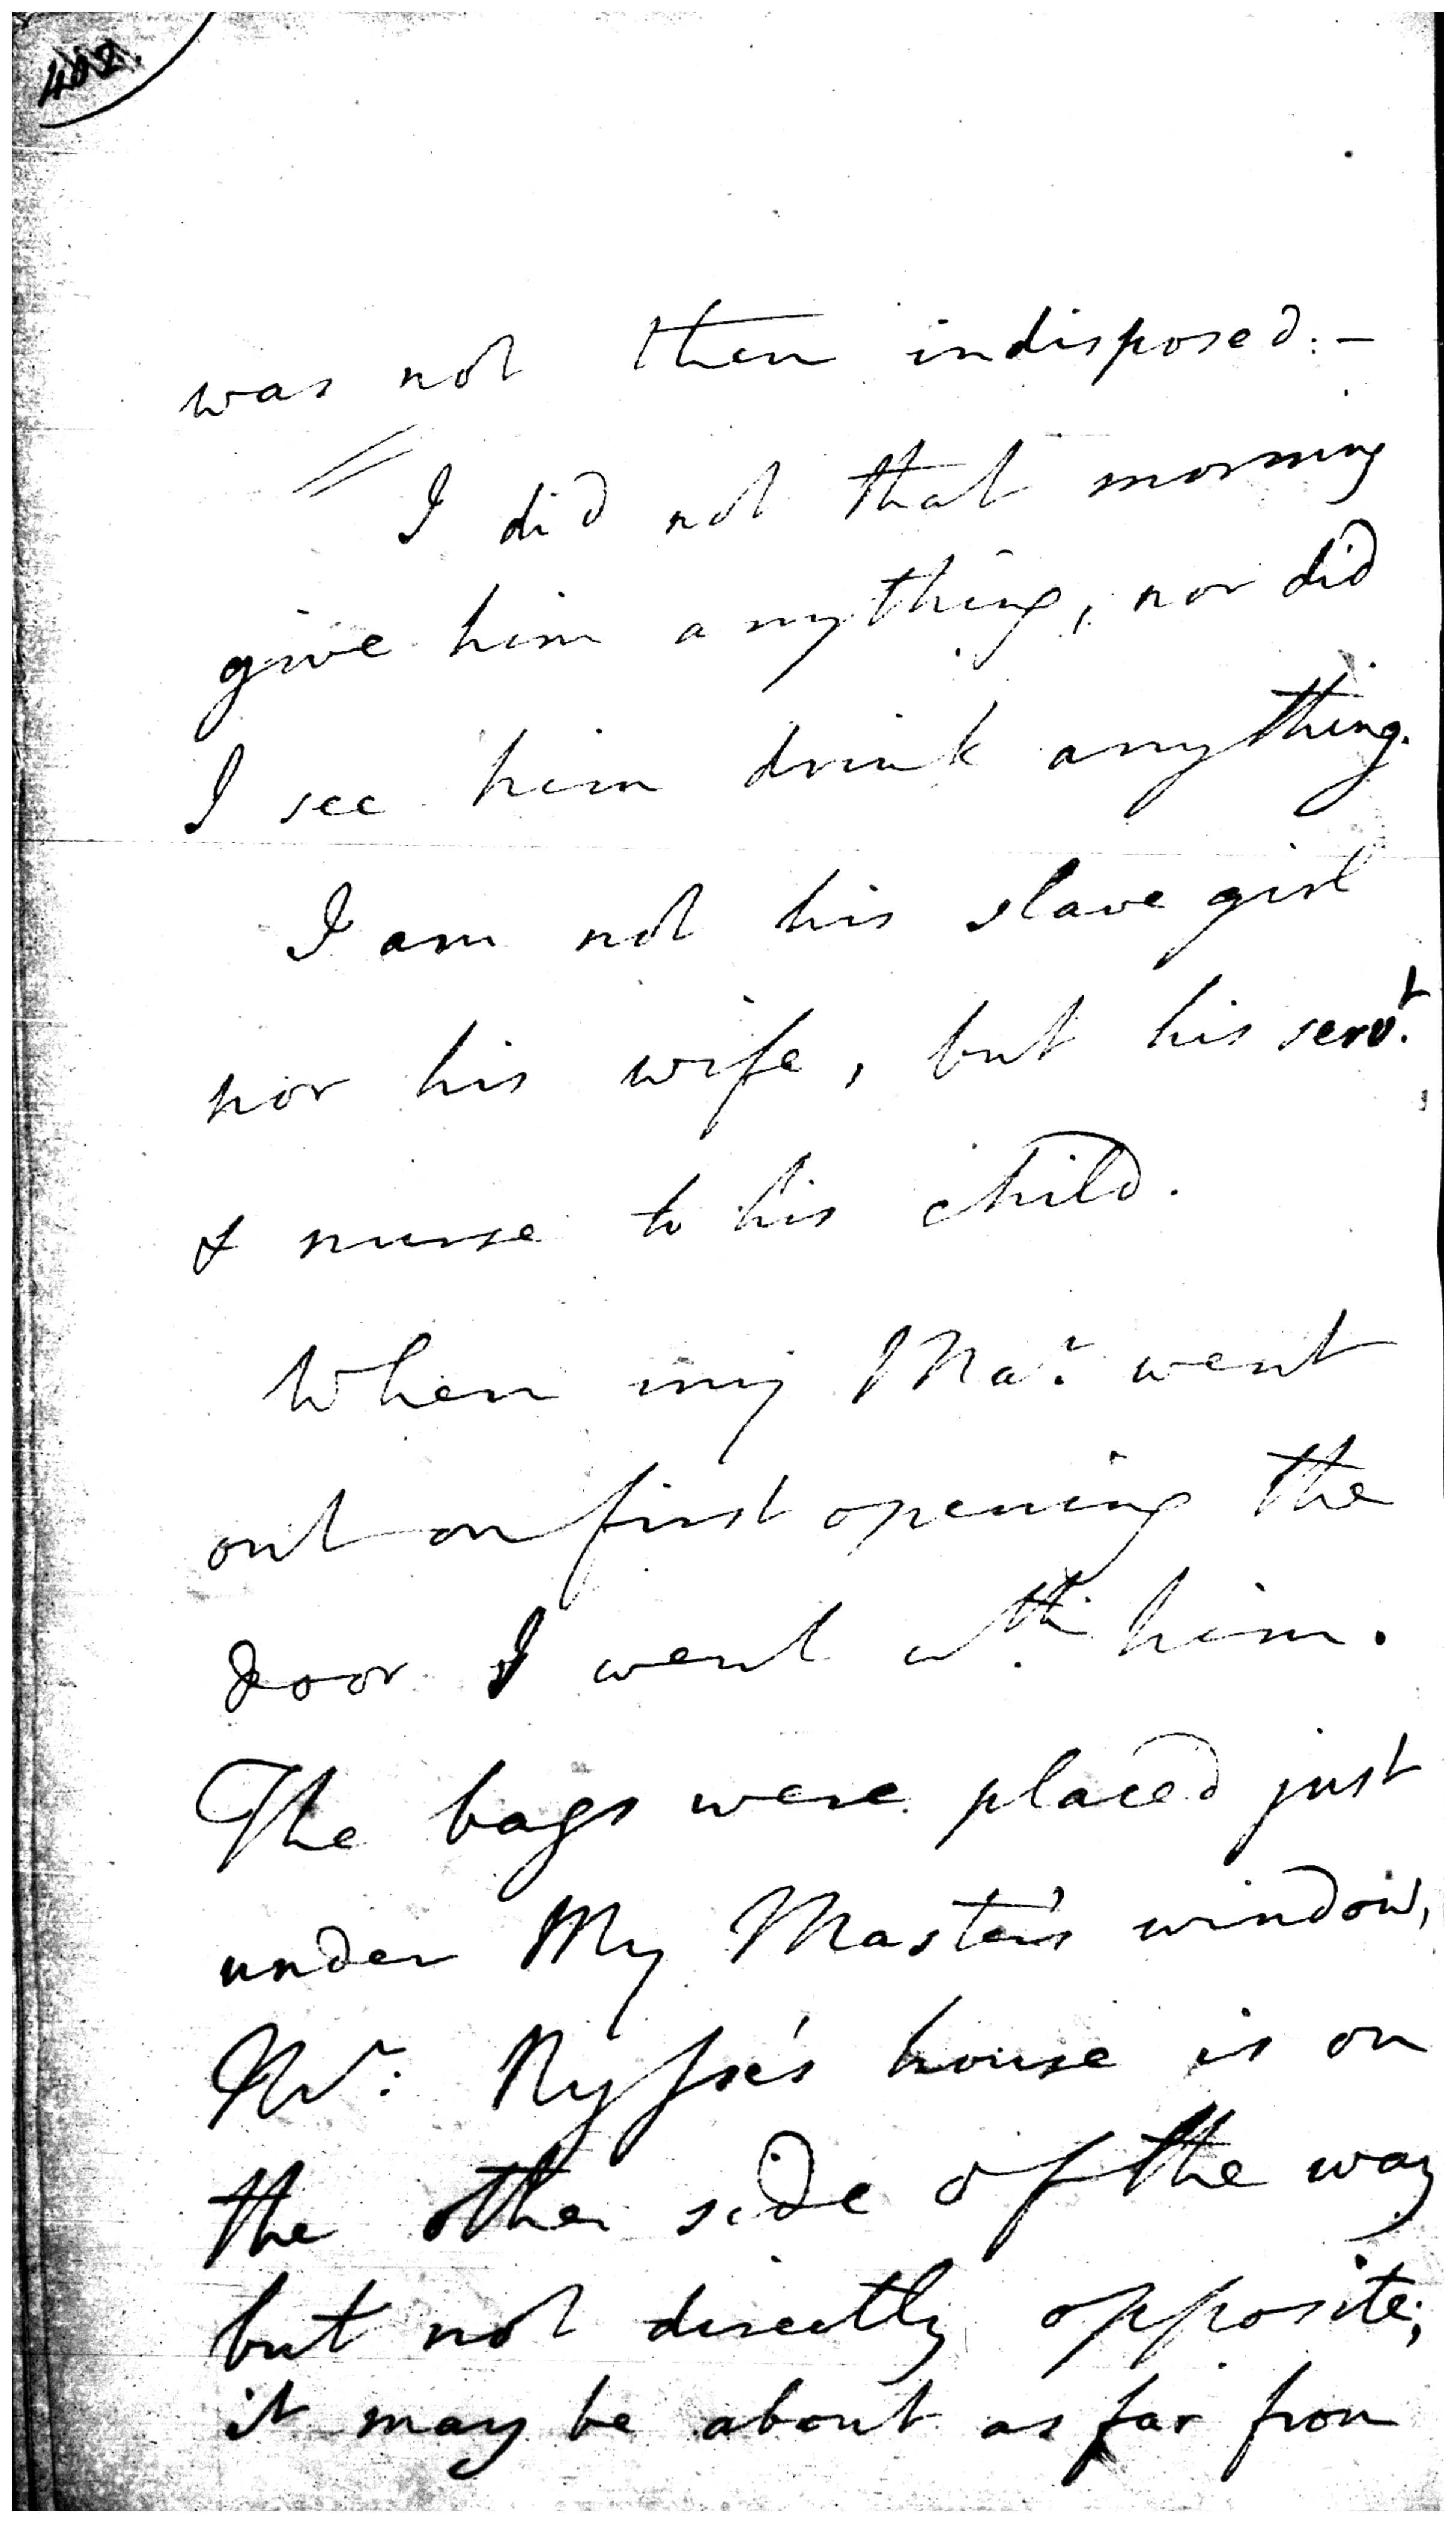 402.
was not then indisposed:-
I did not that morning
give him anything, nor did
I see him drink anything.
I am not his slave girl
nor his wife, but his servt.
& nurse to his child.
When my Mar. went
out on first opening the
door I went wth. him.
The bags were placed just
under My Master's window,
Mr: Nysse's house is on
the other side of the way
but not directly opposite;
it may be about as far from